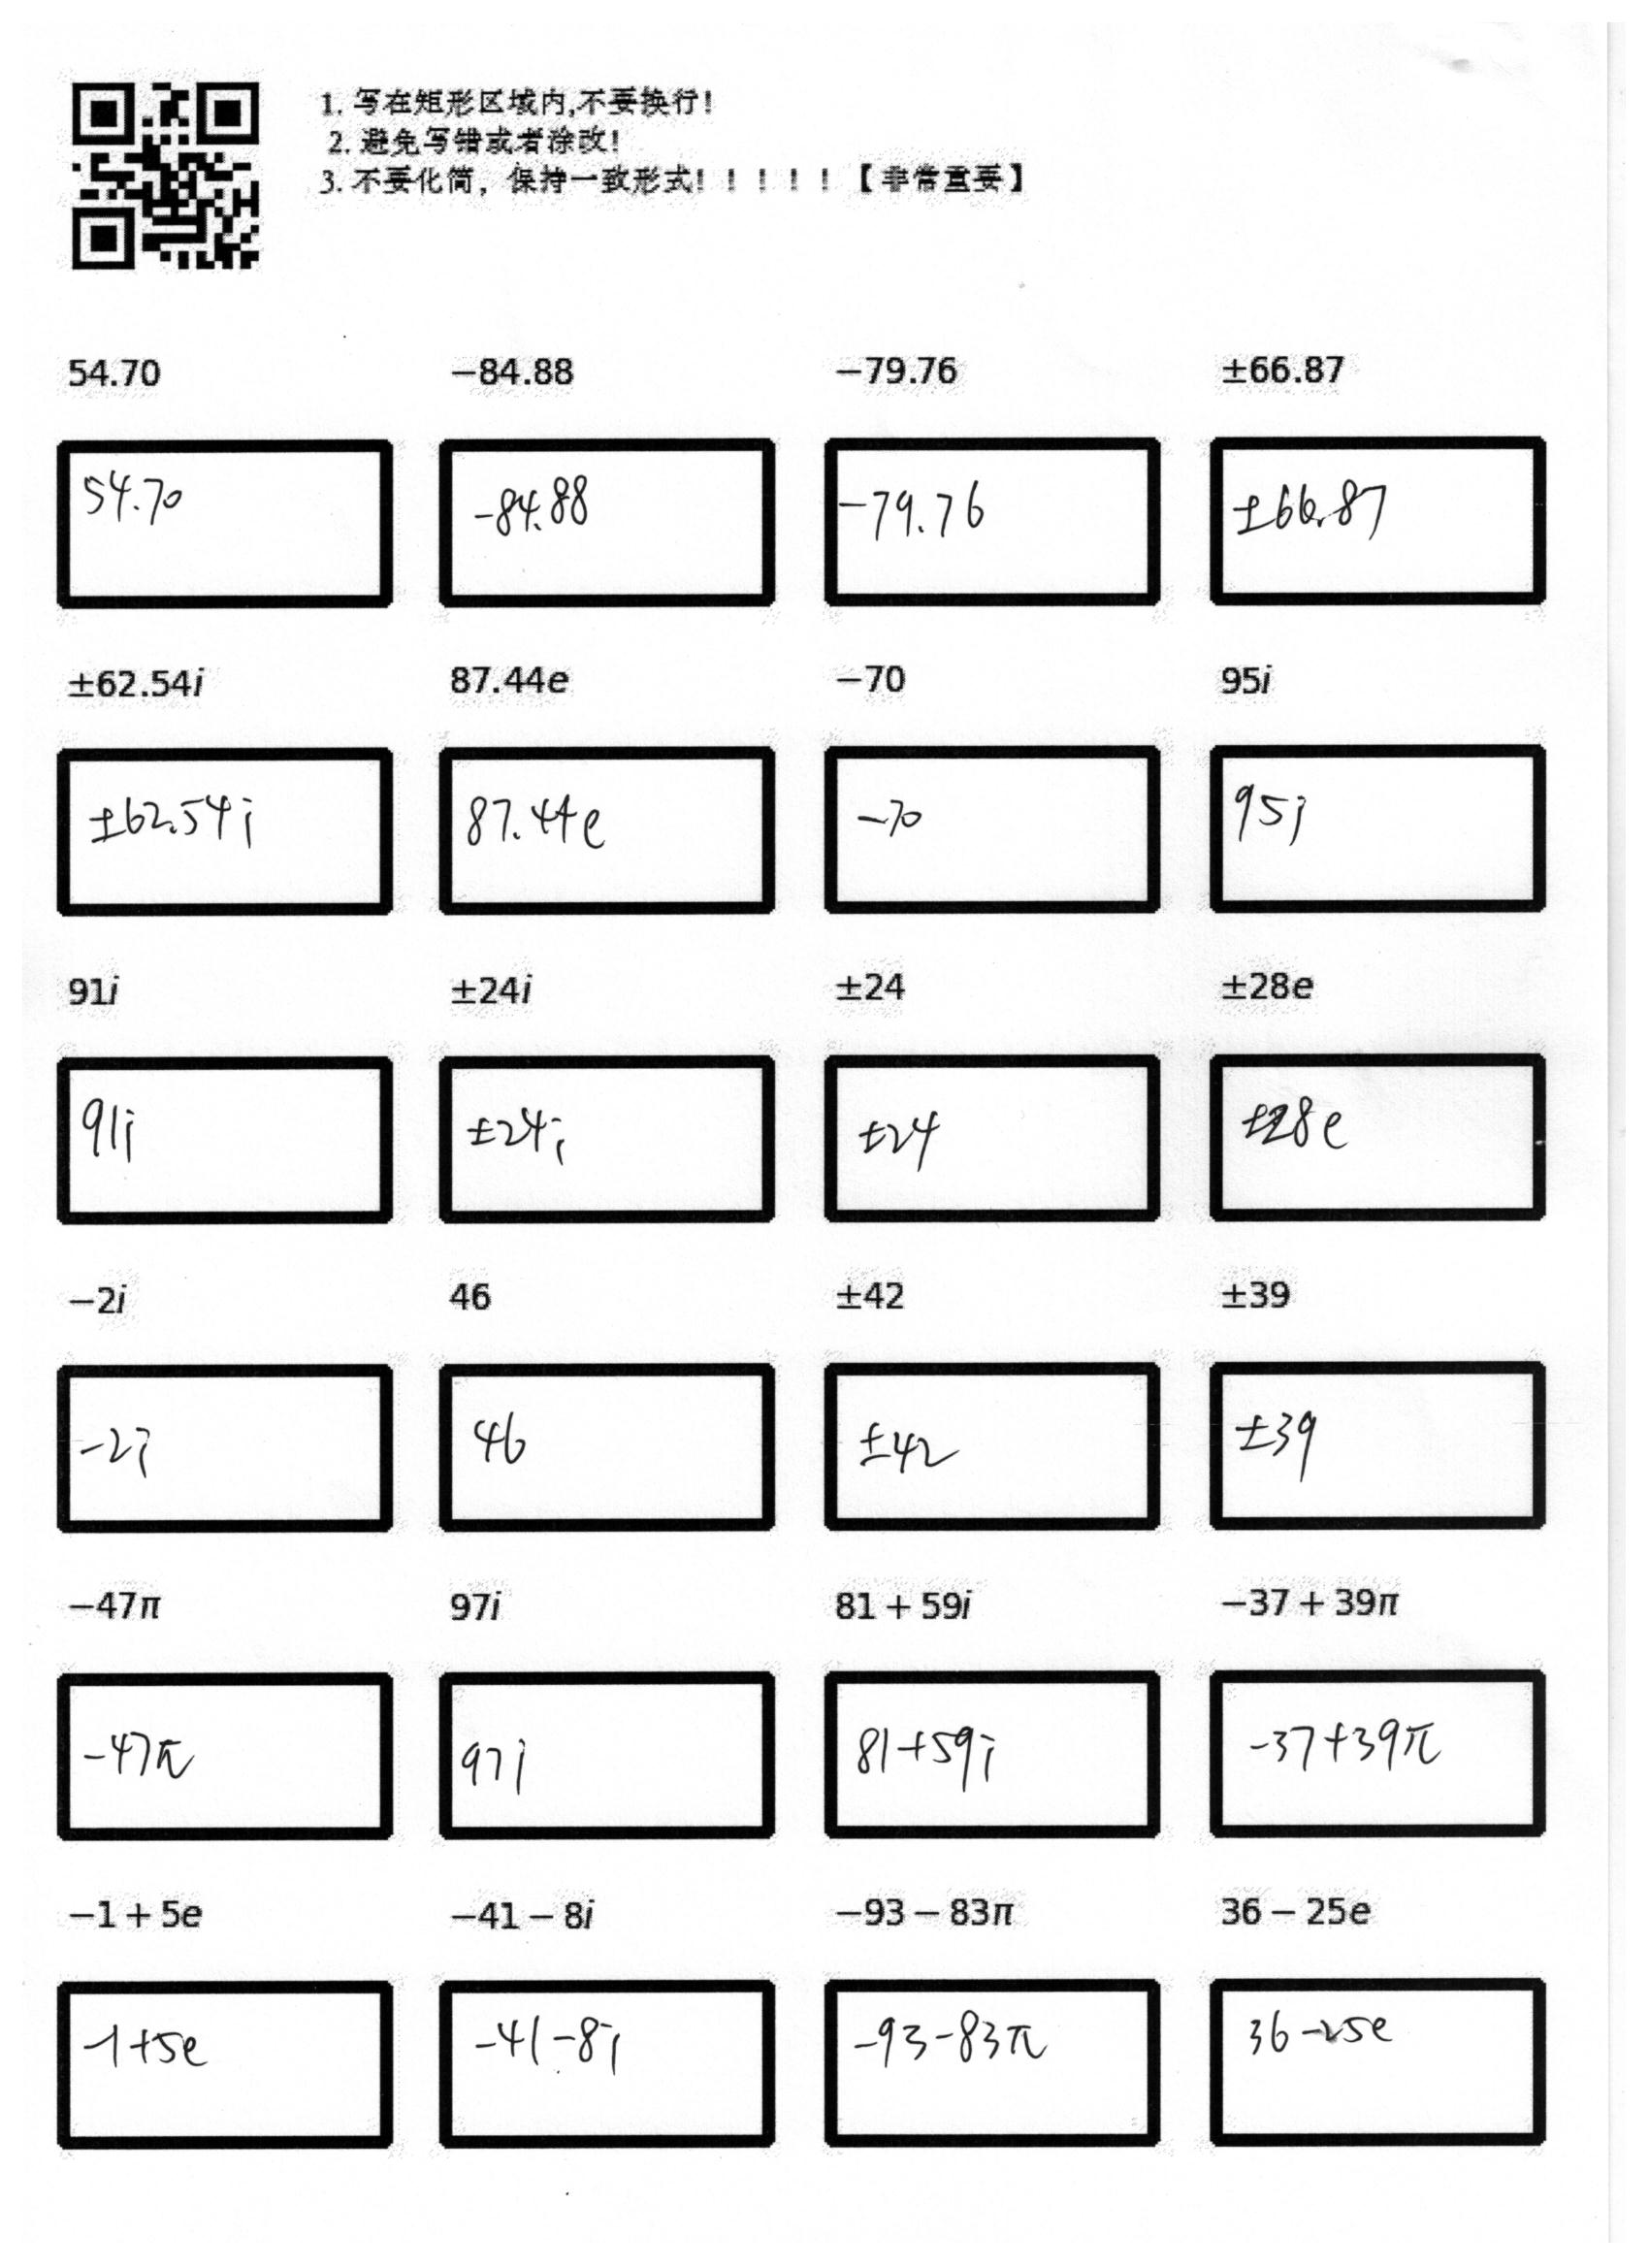 1. 写在矩形区域内,不要换行!
2. 避免写错或者涂改!
3. 不要化简，保持一致形式! ! ! ! ! 【非常重要】
54.70 −84.88 −79.76 ±66.87
54.70 -84.88 -79.76 ±66.87
±62.54i 87.44e −70 95i
±62.54i 87.44e -70 95i
91i ±24i ±24 ±28e
91i ±24i ±24 ±28e
−2i 46 ±42 ±39
-2i 46 ±42 ±39
−47π 97i 81 + 59i −37 + 39π
-47π 97i 81+59i -37+39π
−1 + 5e −41 − 8i −93 − 83π 36 − 25e
-1+5e -41-8i -93-83π 36-25e